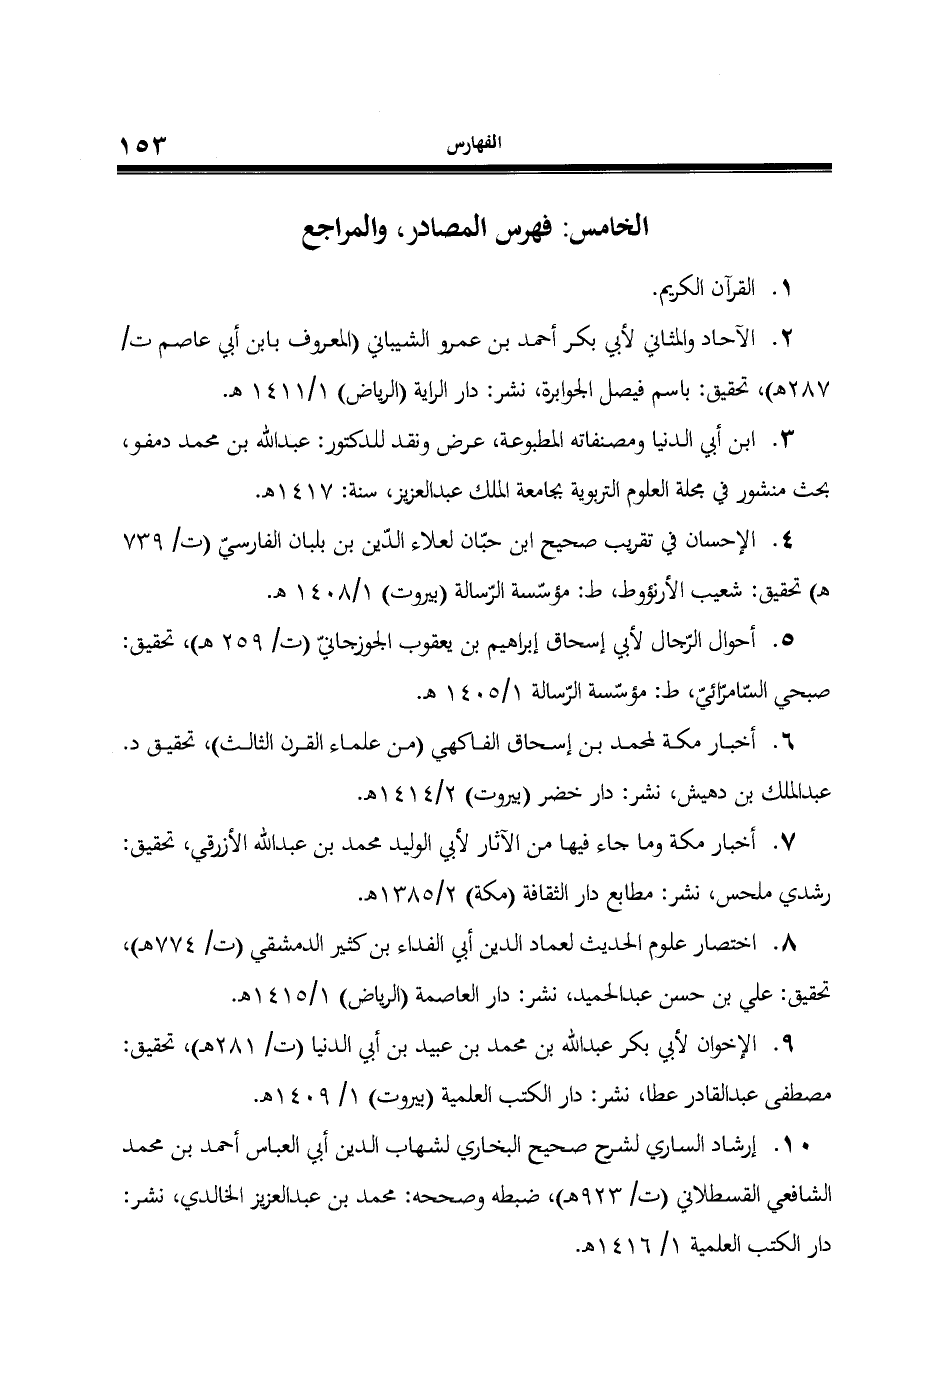 الفهارس ١٥٣
الخامس: فهرس المصادر، والمراجع
١. القرآن الكريم.
٢. الآحاد والمثاني لأبي بكر أحمد بن عمرو الشيباني (المعروف بابن أبي عاصم ت/
٢٨٧هـ)، تحقيق: باسم فيصل الجوابرة، نشر: دار الراية (الرياض) ١٤١١/١ هـ.
٣. ابن أبي الدنيا ومصنفاته المطبوعة، عرض ونقد للدكتور: عبدالله بن محمد دمفو،
بحث منشور في مجلة العلوم التربوية بجامعة الملك عبدالعزيز، سنة: ١٤١٧هـ.
٤. الإحسان في تقريب صحيح ابن حبّان لعلاء الدّين بن بلبان الفارسيّ (ت/ ٧٣٩
هـ) تحقيق: شعيب الأرنؤوط، ط: مؤسّسة الرّسالة (بيروت) ١٤٠٨/١ هـ.
٥. أحوال الرّجال لأبي إسحاق إبراهيم بن يعقوب الجوزجانيّ (ت/ ٢٥٩ هـ)، تحقيق:
صبحي السّامرّائيّ، ط: مؤسّسة الرّسالة ١٤٠٥/١ هـ.
٦. أخبار مكة لمحمد بن إسحاق الفاكهي (من علماء القرن الثالث)، تحقيق د.
عبدالملك بن دهيش، نشر: دار خضر (بيروت) ١٤١٤/٢هـ.
٧. أخبار مكة وما جاء فيها من الآثار لأبي الوليد محمد بن عبدالله الأزرقي، تحقيق:
رشدي ملحس، نشر: مطابع دار الثقافة (مكة) ١٣٨٥/٢هـ.
٨. اختصار علوم الحديث لعماد الدين أبي الفداء بن كثير الدمشقي (ت/ ٧٧٤هـ)،
تحقيق: علي بن حسن عبدالحميد، نشر: دار العاصمة (الرياض) ١٤١٥/١هـ.
٩. الإخوان لأبي بكر عبدالله بن محمد بن عبيد بن أبي الدنيا (ت/ ٢٨١هـ)، تحقيق:
مصطفى عبدالقادر عطا، نشر: دار الكتب العلمية (بيروت) ١/ ١٤٠٩هـ.
١٠. إرشاد الساري لشرح صحيح البخاري لشهاب الدين أبي العباس أحمد بن محمد
الشافعي القسطلاني (ت/ ٩٢٣هـ)، ضبطه وصححه: محمد بن عبدالعزيز الخالدي، نشر:
دار الكتب العلمية ١/ ١٤١٦هـ.